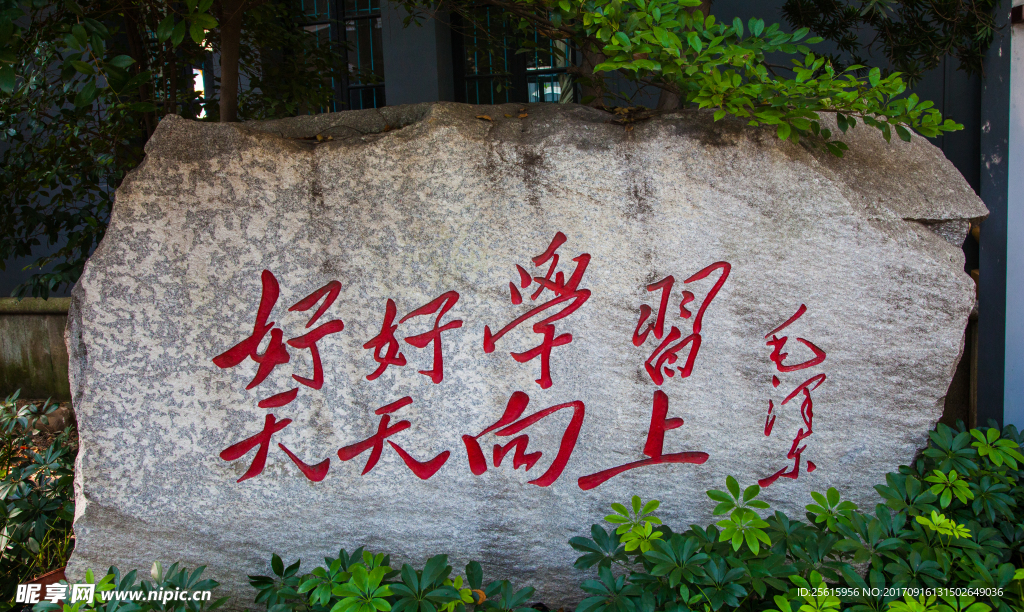 好好學習
天天向上
毛澤东
昵享网 www.nipic.cn
ID:25615956 NO:20170916151502649036